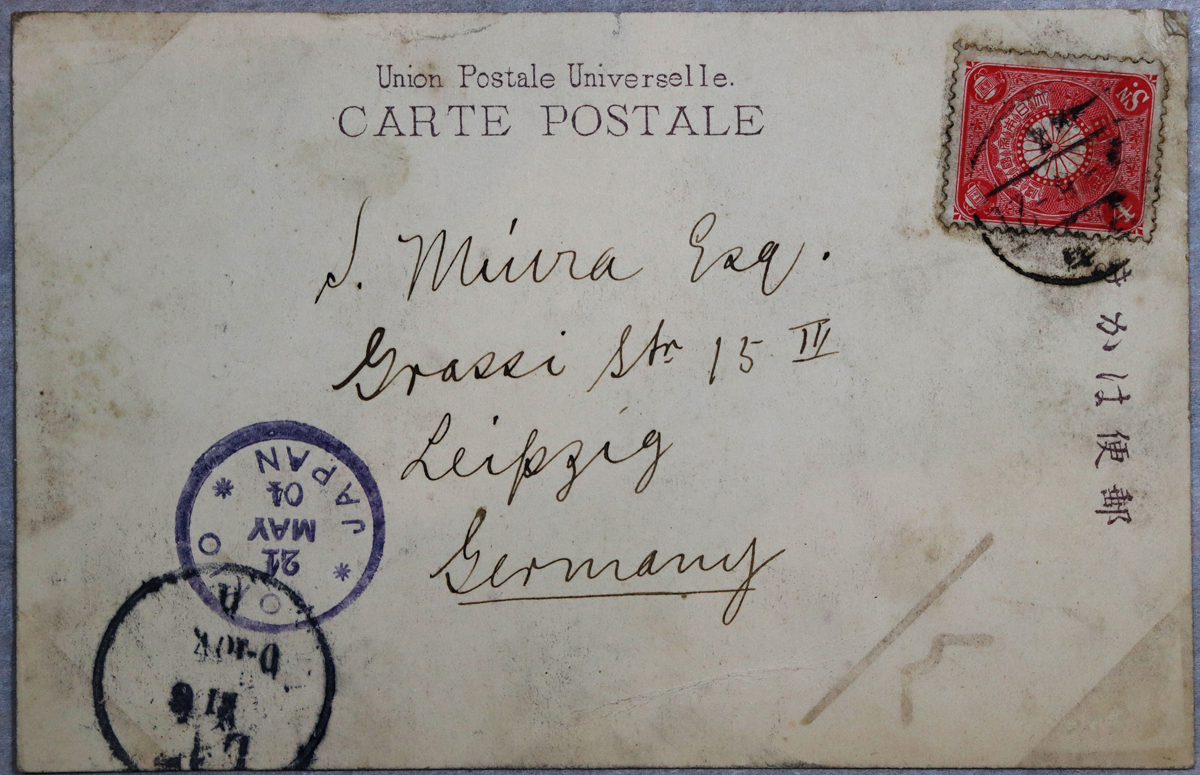 Union Postale Universelle.
CARTE POSTALE
S. Miura Esq.
Grassi Str 15 III
Leipzig
Germany
郵便はかき
4 Sn.
JAPAN
21
MAY
04